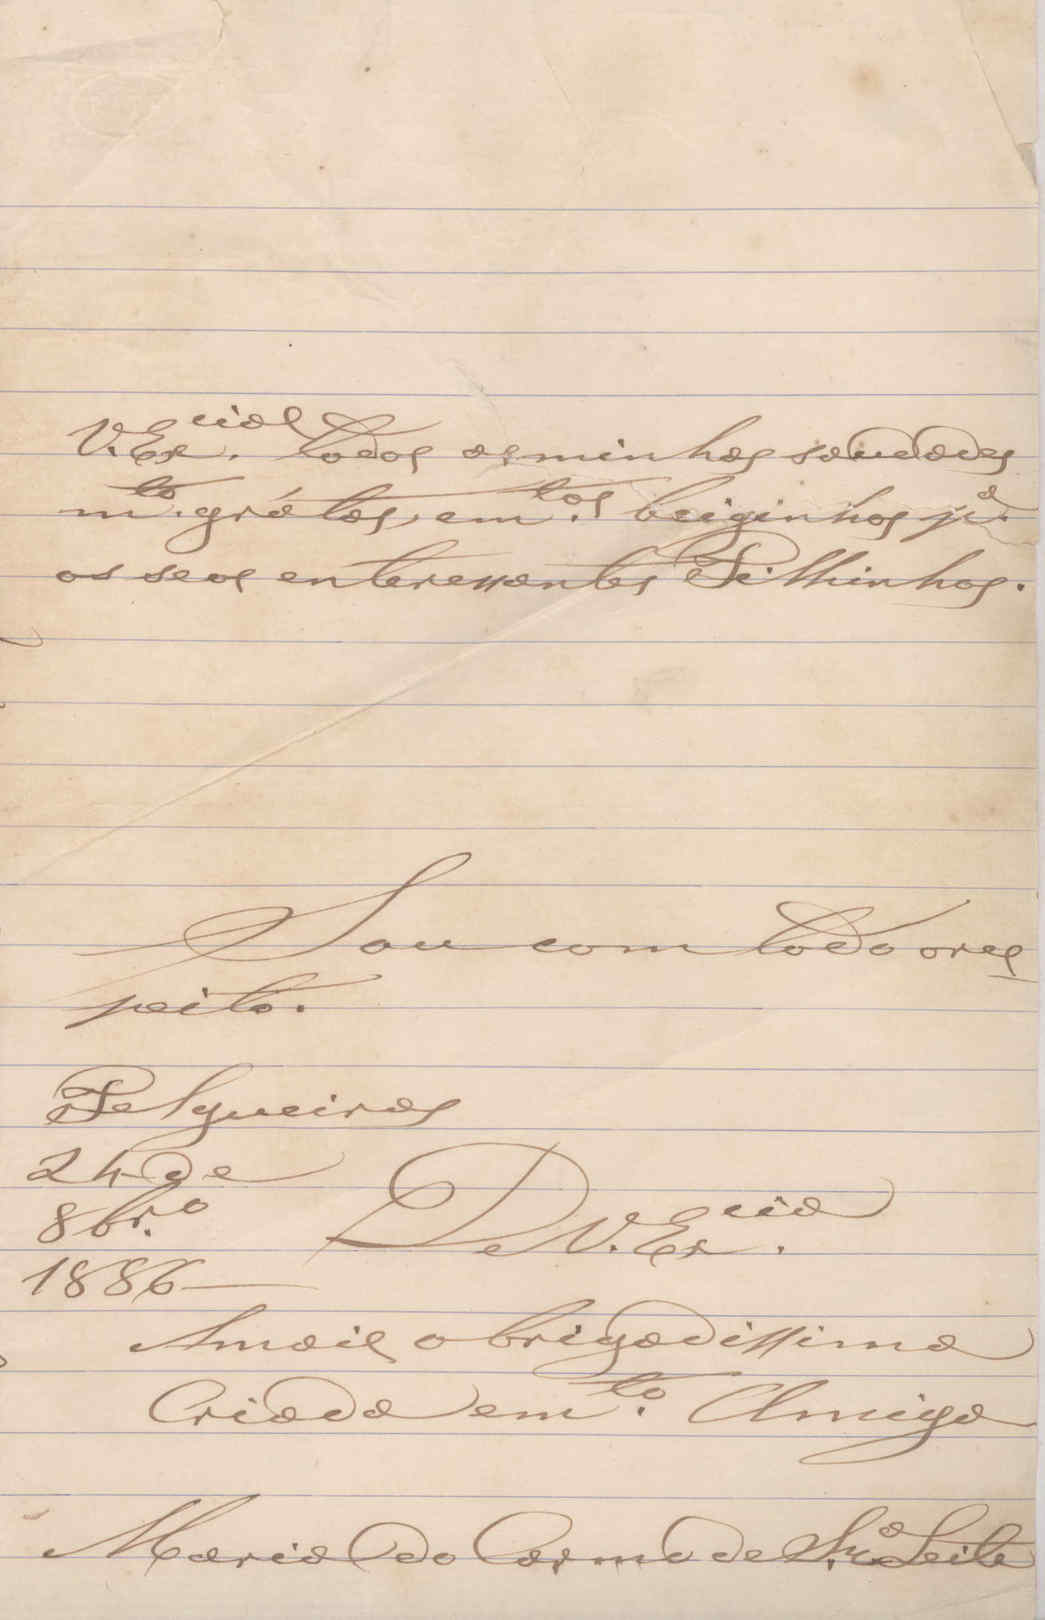 V. Ex.cias todos as minhas saudades
m.to grátas, e m.tos beiginhos p.a
os seos enteressantes Filhinhos.
Sou com todo o res
peito.
Felgueiras
24 de
8br.o
1886
De V. Ex.cia
A mais obrigadissima
Criada e m.to Amiga
Maria do Carmo de Leite